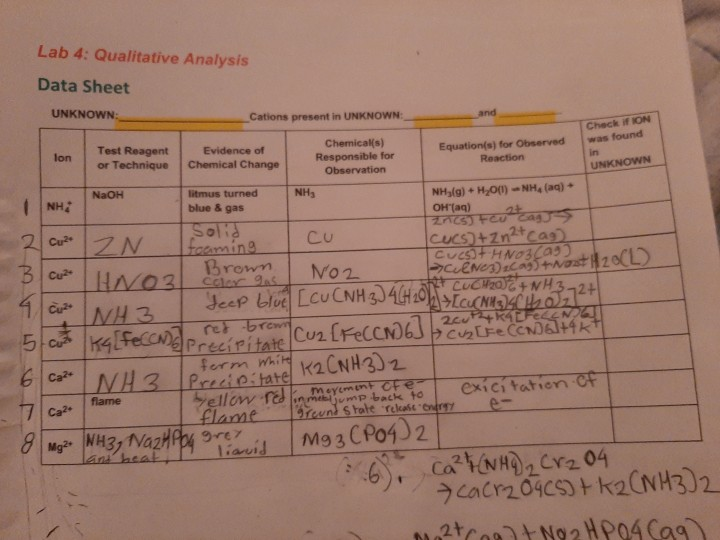 Lab 4: Qualitative Analysis
Data Sheet
UNKNOWN: Cations present in UNKNOWN: and
Ion
Test Reagent
or Technique
Evidence of
Chemical Change
Chemical(s)
Responsible for
Observation
Equation(s) for Observed
Reaction
Check if ION
was found
in
UNKNOWN
1 NH₄⁺
NaOH
litmus turned
blue & gas
NH₃
NH₃(g) + H₂O(l) → NH₄ (aq) +
OH⁻(aq)
2 Cu²⁺
ZN
Solid
foaming
Cu
Zn(s) + Cu²⁺(aq) →
Cu(s) + Zn²⁺(aq)
3 Cu²⁺
HNO3
Brown
color gas
NO2
Cu(s) + HNO3(aq)
→ Cu(NO3)2(aq) + NO2 + H2O(L)
4 Cu²⁺
NH3
deep blue
[Cu(NH3)4(H2O)2]
Cu(H2O)6 + NH3
→ [Cu(NH3)4(H2O)2]2+
5 Cu²⁺
K4[Fe(CN)6]
red-brown
Precipitate
Cu2[Fe(CN)6]
2Cu+2 + K4[Fe(CN)6]
→ Cu2[Fe(CN)6] + 4K+
6 Ca²⁺
NH3
form white
Precipitate
K2(NH3)2
7 Ca²⁺
flame
yellow red
flame
movement of e-
in metal jump back to
ground state release energy
exicitation of
e-
8 Mg²⁺
NH3, Na2HPO4
and heat.
grey
liquid
Mg3(PO4)2
6). Ca2+ + (NH4)2Cr2O4
→ CaCr2O4(s) + K2(NH3)2
Mg2+(aq) + Na2HPO4(aq)